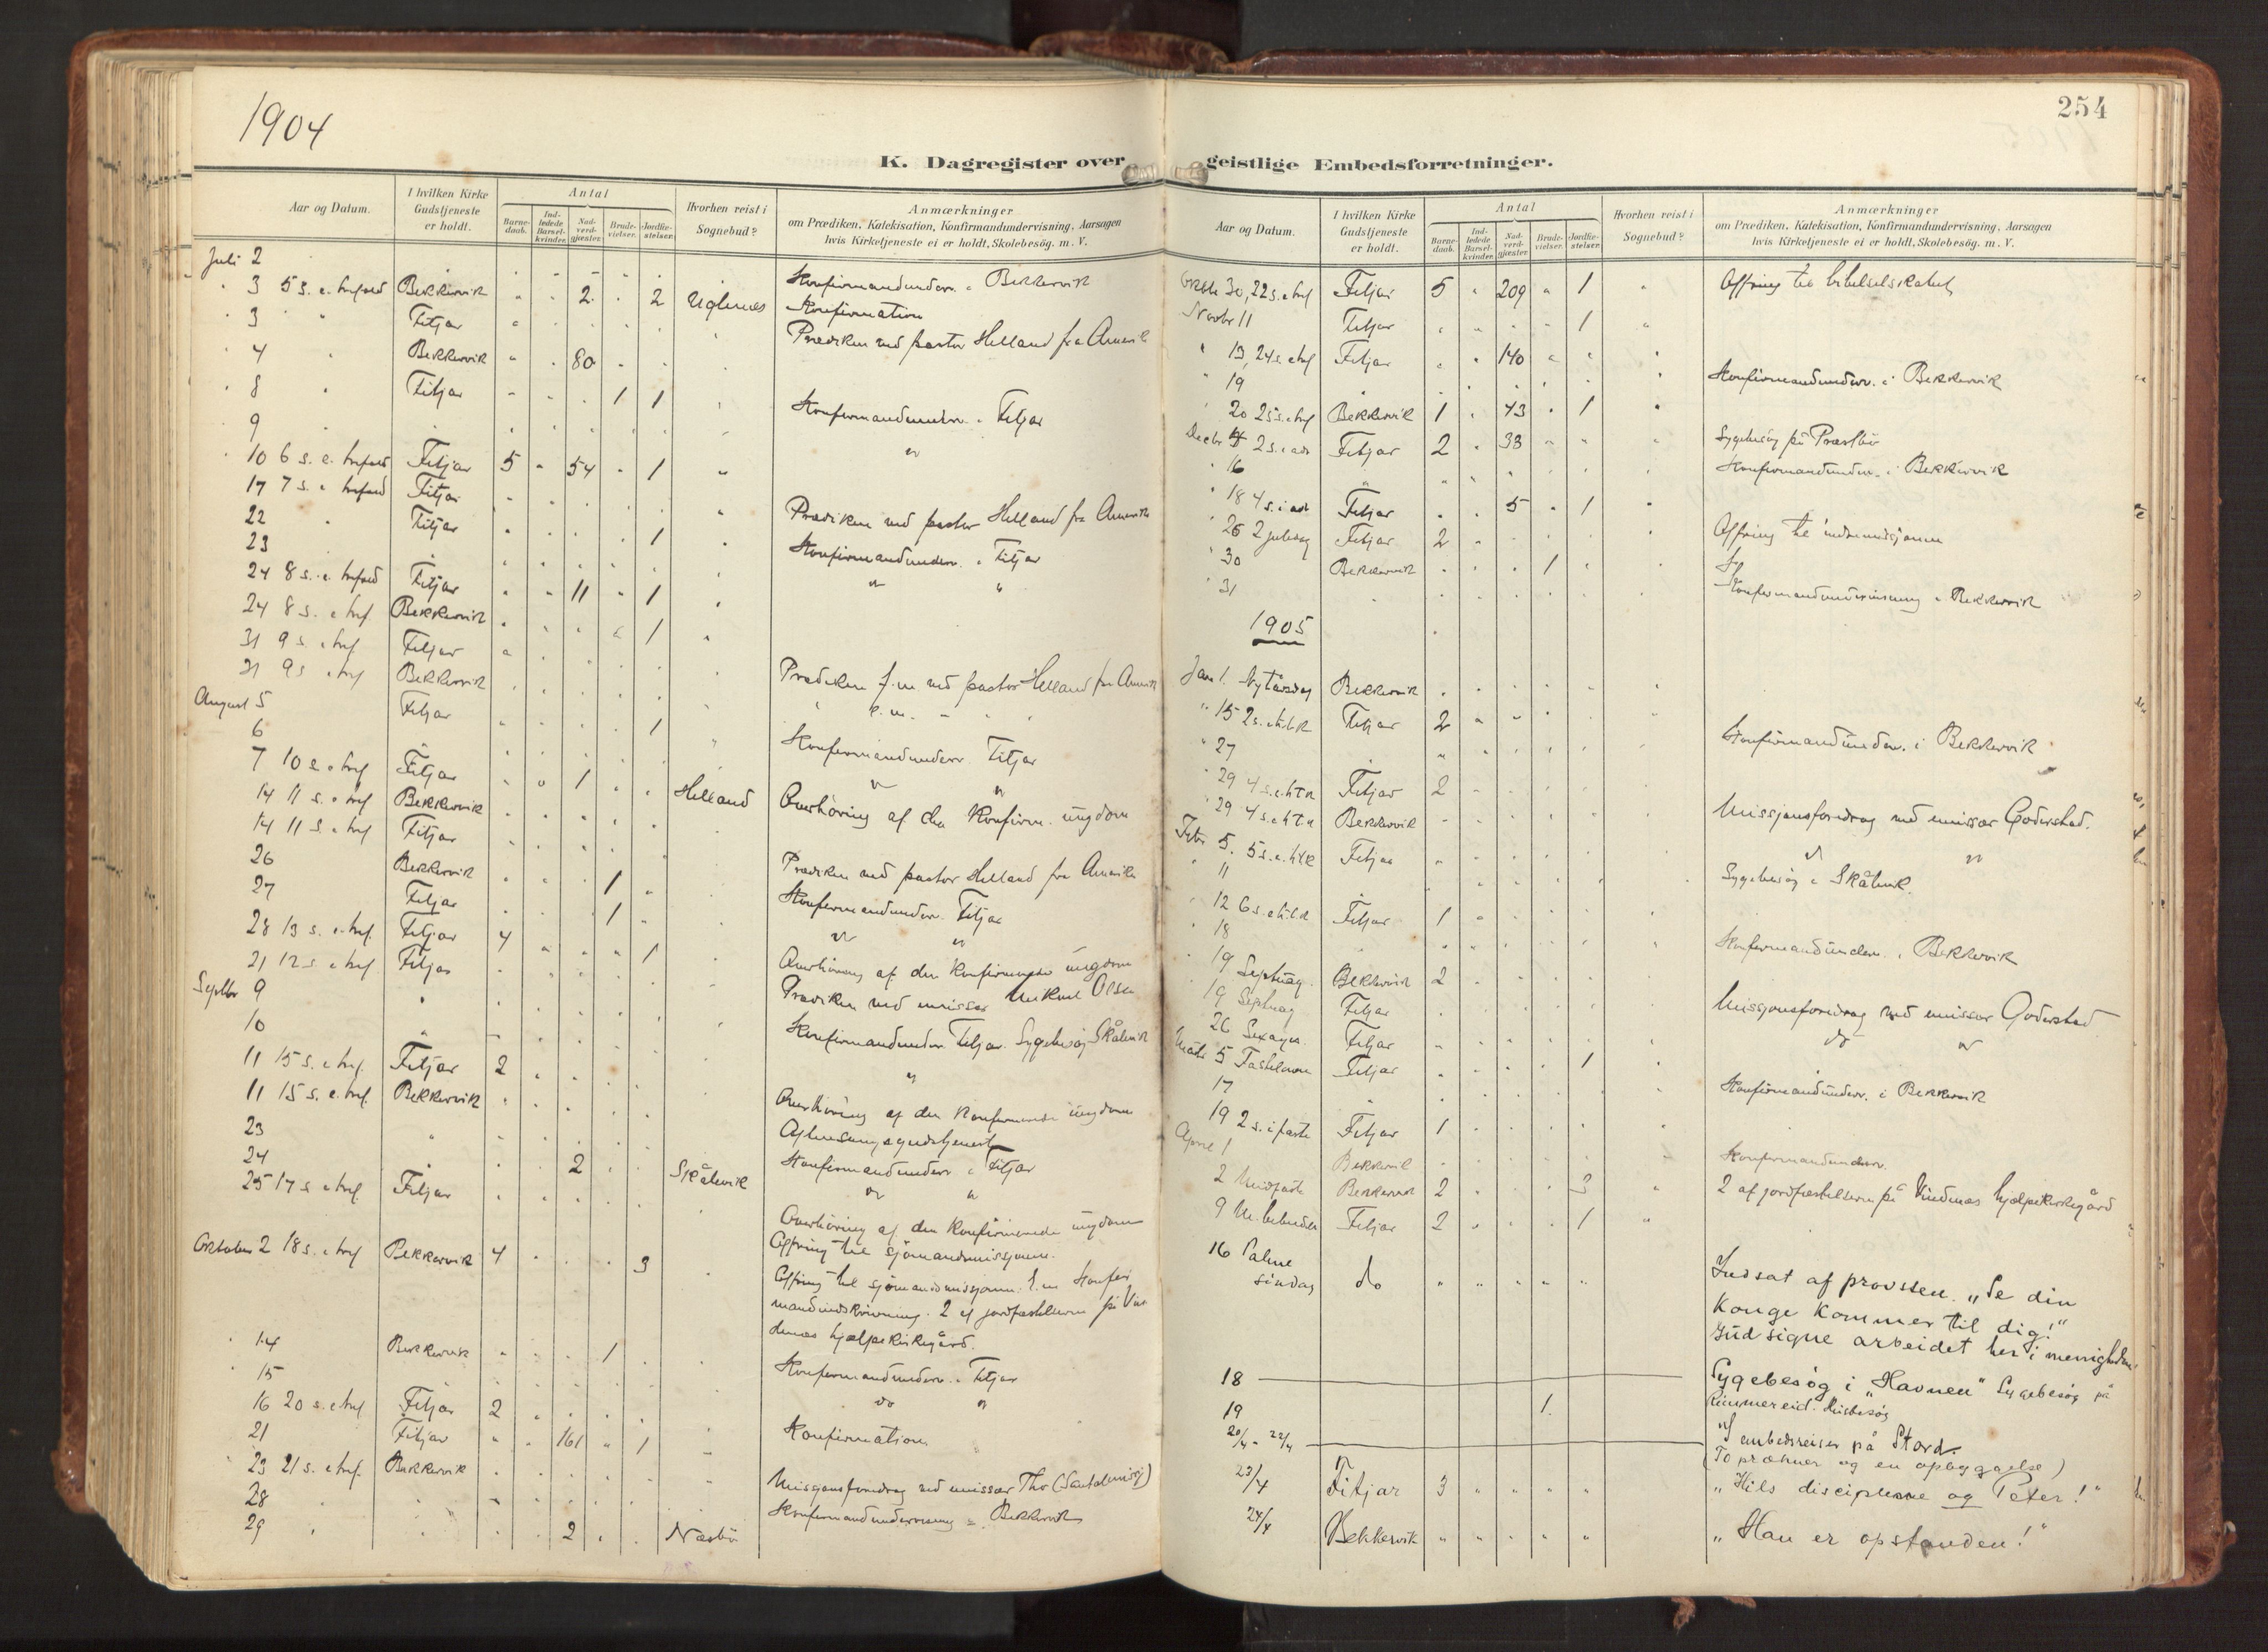 1904
K. Dagregister over
Aar og Datum.
I hvilken Kirke Gudstjeneste er holdt.
Antal
Barnedaab.
Indledede Barselkvinder.
Nadverdgjæster.
Brudevielser.
Jordfæstelser.
Hvorhen reist i Sognebud?
Anmærkninger
om Prædiken, Katekisation, Konfirmandundervisning, Aarsagen
hvis Kirketjeneste ei er holdt, Skolebesög. m. V.
Juli 2 Konfirmandunderv. i Bekkervik
3 5 s. e. trefold Bekkervik 2 2 Uglenes Konfirmation
3 Fitjar Prædiken ved pastor Helland fra Amerik
4 Bekkervik 80
8 Fitjar 1 1
9 Konfirmandunderv. i Fitjar
10 6 s. e. trefold Fitjar 5 54 1
17 7 s. e trefold Fitjar Prædiken ved pastor Helland fra Amerika
22 Fitjar 1
23 Konfirmandunderv. i Fitjar
24 8 s. e. trefold Fitjar 11 1
24 8 s. e tref. Bekkervik 1
31 9 s. e tref Fitjar Prædiken f.m ved pastor Helland fra Amerik
31 9 s e tref Bekkervik e.m.
August 5 Fitjar 1
6 Konfirmandunderv. Fitjar
7 10 s. e tref Fitjar 1 Helland
14 11 s. e tref Bekkervik Overhöring af den konfirm. ungdom
14 11 s. e tref Fitjar
26 Bekkervik 1 Prædiken ved pastor Helland fra Amerika
27 Fitjar 1 Konfirmandunderv. Fitjar
28 13 s. e. tref. Fitjar 4 1
21 12 s e tref. Fitjar Overhöring af den konfirmerede ungdom
Septbr 9 Prædiken ved emissær Olsen
10 Konfirmandunder. Fitjar. Sygebesög Skålevik
11 15 s. e tref. Fitjar 2
11 15 s. e. tref. Bekkervik Overhöring af den konfirmerede ungdom
23
24 2 Skålevik Konfirmandunderv i Fitjar
25 17 s e tref. Fitjar
Overhöring af den konfirmerede ungdom
Offring til sjömandsmissjonen.
Oktober 2 18 s. e tref Bekkervik 4 3 Offring til sjömandsmissjonen. E.m Konfir
mandindskrivning. 2 af jordfæstelserne på Vin
denes hjælpekirkegård.
14 Bekkervik 1
15 Konfirmandunderv. i Fitjar
16 20 s. e tref Fitjar 2 do
21 Fitjar 161 1 Konfirmation
23 21 s. e tref. Bekkervik Missjonsforedrag ved emissær Tho (Santalmisj)
28 Konfirmandundervisning i Bekkervik
29 2 Næsbö
254
geistlige Embedsforretninger.
Aar og Datum.
I hvilken Kirke Gudstjeneste er holdt.
Antal
Barnedaab.
Indledede Barselkvinder.
Nadverdgjæster.
Brudevielser.
Jordfæstelser.
Hvorhen reist i Sognebud?
Anmærkninger
om Prædiken, Katekisation, Konfirmandundervisning, Aarsagen
hvis Kirketjeneste ei er holdt, Skolebesög. m. V.
Oktbr 30, 22 s. e tref Fitjar 5 209 1 Offring til bibelselskabet
Novbr 11 Fitjar 1
13, 24 s. e tref Fitjar 140
19 Konfirmandunderv. i Bekkervik
20 25 s. e tref Bekkervik 1 43 1
Decbr 4 2 s. i adv Fitjar 2 38 Sygebesög på Præstbö
16 Konfirmandunder. i Bekkervik
18 4 s. i adv Fitjar 5 1
26 2 juledag Fitjar 2 Offring til indremissjonen
30 Bekkervik 1
31 Konfirmandundervisning i Bekkervik
1905
Jan 1. Nytårsdag Bekkervik
15 2 s. e h.3.k Fitjar 2
27 Konfirmandunderv. i Bekkervik
29 4 s. e. h.3.k Fitjar 2
29 4 s. e h.3.k Bekkervik Missjonsforedrag ved emissær Goderstad.
Febr 5. 5 s. e. h3k Fitjar
11 Sygebesög i Skålevik.
12 6 s. e h.3.k Fitjar 1
18 Konfirmandunderv. i Bekkervik
19 Septuag. Bekkervik 2
19 Septuag Fitjar Missjonsforedrag ved emissær Goderstad
26 Sexages. Fitjar do
Marts 5 Fastelavn Fitjar 1
17 Konfirmandunderv. i Bekkervik
19 2 s. i faste Fitjar 1
April 1 Bekkervik Konfirmandunderv.
2 Midfaste Bekkervik 2 3 2 af jordfæstelserne på Vindenes hjælpekirkegård
9 M. bebudelse Fitjar 2 1
16 Palme
söndag do Indsat af provsten. „Se din
konge kommer til dig!“
Gud signe arbeidet her i menigheden.
18 Sygebesög i „Havnen“ Sygebesög på
Rimmereid. Husbesög
19 1.
20/4 - 22/4 På embedsreiser på Stord.
(To præker og en opbyggelse)
23/4 Fitjar 3 „Hils disciplene og Peter!“
24/4 Bekkervik „Han er opstanden!“